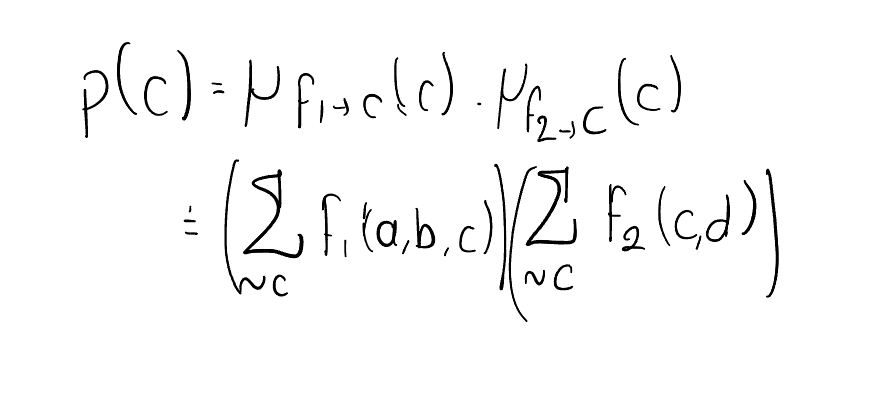 p(c) = μ_{f₁→c}(c) · μ_{f₂→c}(c)
= (∑_{~c} f₁(a,b,c))(∑_{~c} f₂(c,d))